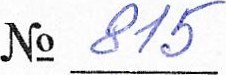 № 815